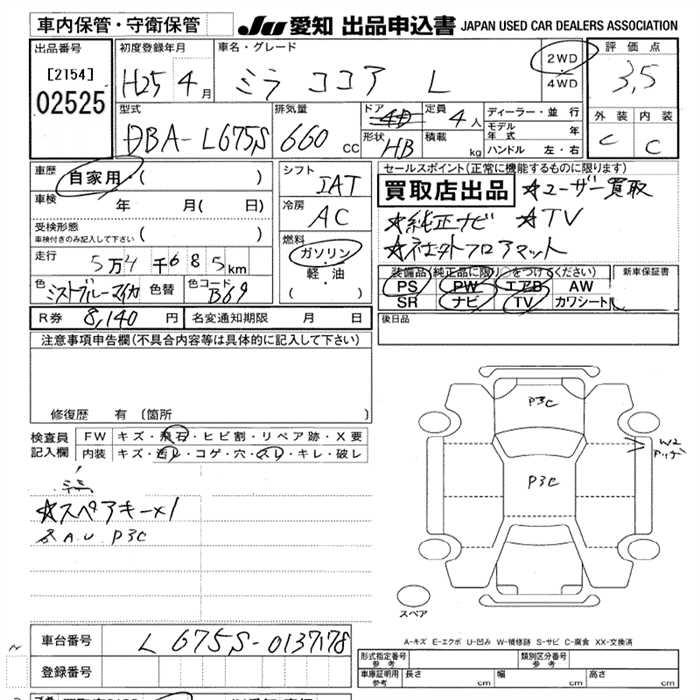 車内保管・守衛保管
JU 愛知 出品申込書 JAPAN USED CAR DEALERS ASSOCIATION
出品番号 初度登録年月 車名・グレード 評価点
[2154] H25 4月 ミラ ココア L 2WD・4WD 3,5
02525
型式 排気量 ドア 4D 定員 4人 ディーラー・並行 外装 内装
DBA-L675S 660cc 形状 HB 積載 kg モデル年式 年 C C
ハンドル 左・右
車歴 自家用・( ) シフト IAT セールスポイント(正常に機能するものに限ります)
買取店出品 ☆ユーザー買取
車検 年 月( 日) 冷房 AC
☆純正ナビ ☆TV
受検形態 ( )
車検付きのみ記入して下さい
☆社外フロアマット
走行 5万4千685km 燃料 ガソリン・軽・油 ( )
装備品(純正品に限り○をつけてください) 新車保証書
色 ミストブルーマイカ 色替 色コード B69 PS PW エアB AW
SR ナビ TV カワシート
R券 8,140円 名変通知期限 月 日 後日品
注意事項申告欄(不具合内容等は具体的に記入して下さい)
修復歴 有 (箇所 )
検査員記入欄 FW キズ・飛石・ヒビ割・リペア跡・X要
内装 キズ・汚レ・コゲ・穴・スレ・キレ・破レ
P3C
W2
P3C
☆スペアキー×1
A.U P3C
スペア
A-キズ E-エクボ U-凹み W-補修跡 S-サビ C-腐食 XX-交換済
車台番号 L675S-0137178
登録番号
形式指定番号 参考 類別区分番号 参考
車庫証明用 参考 長さ cm 幅 cm 高さ cm